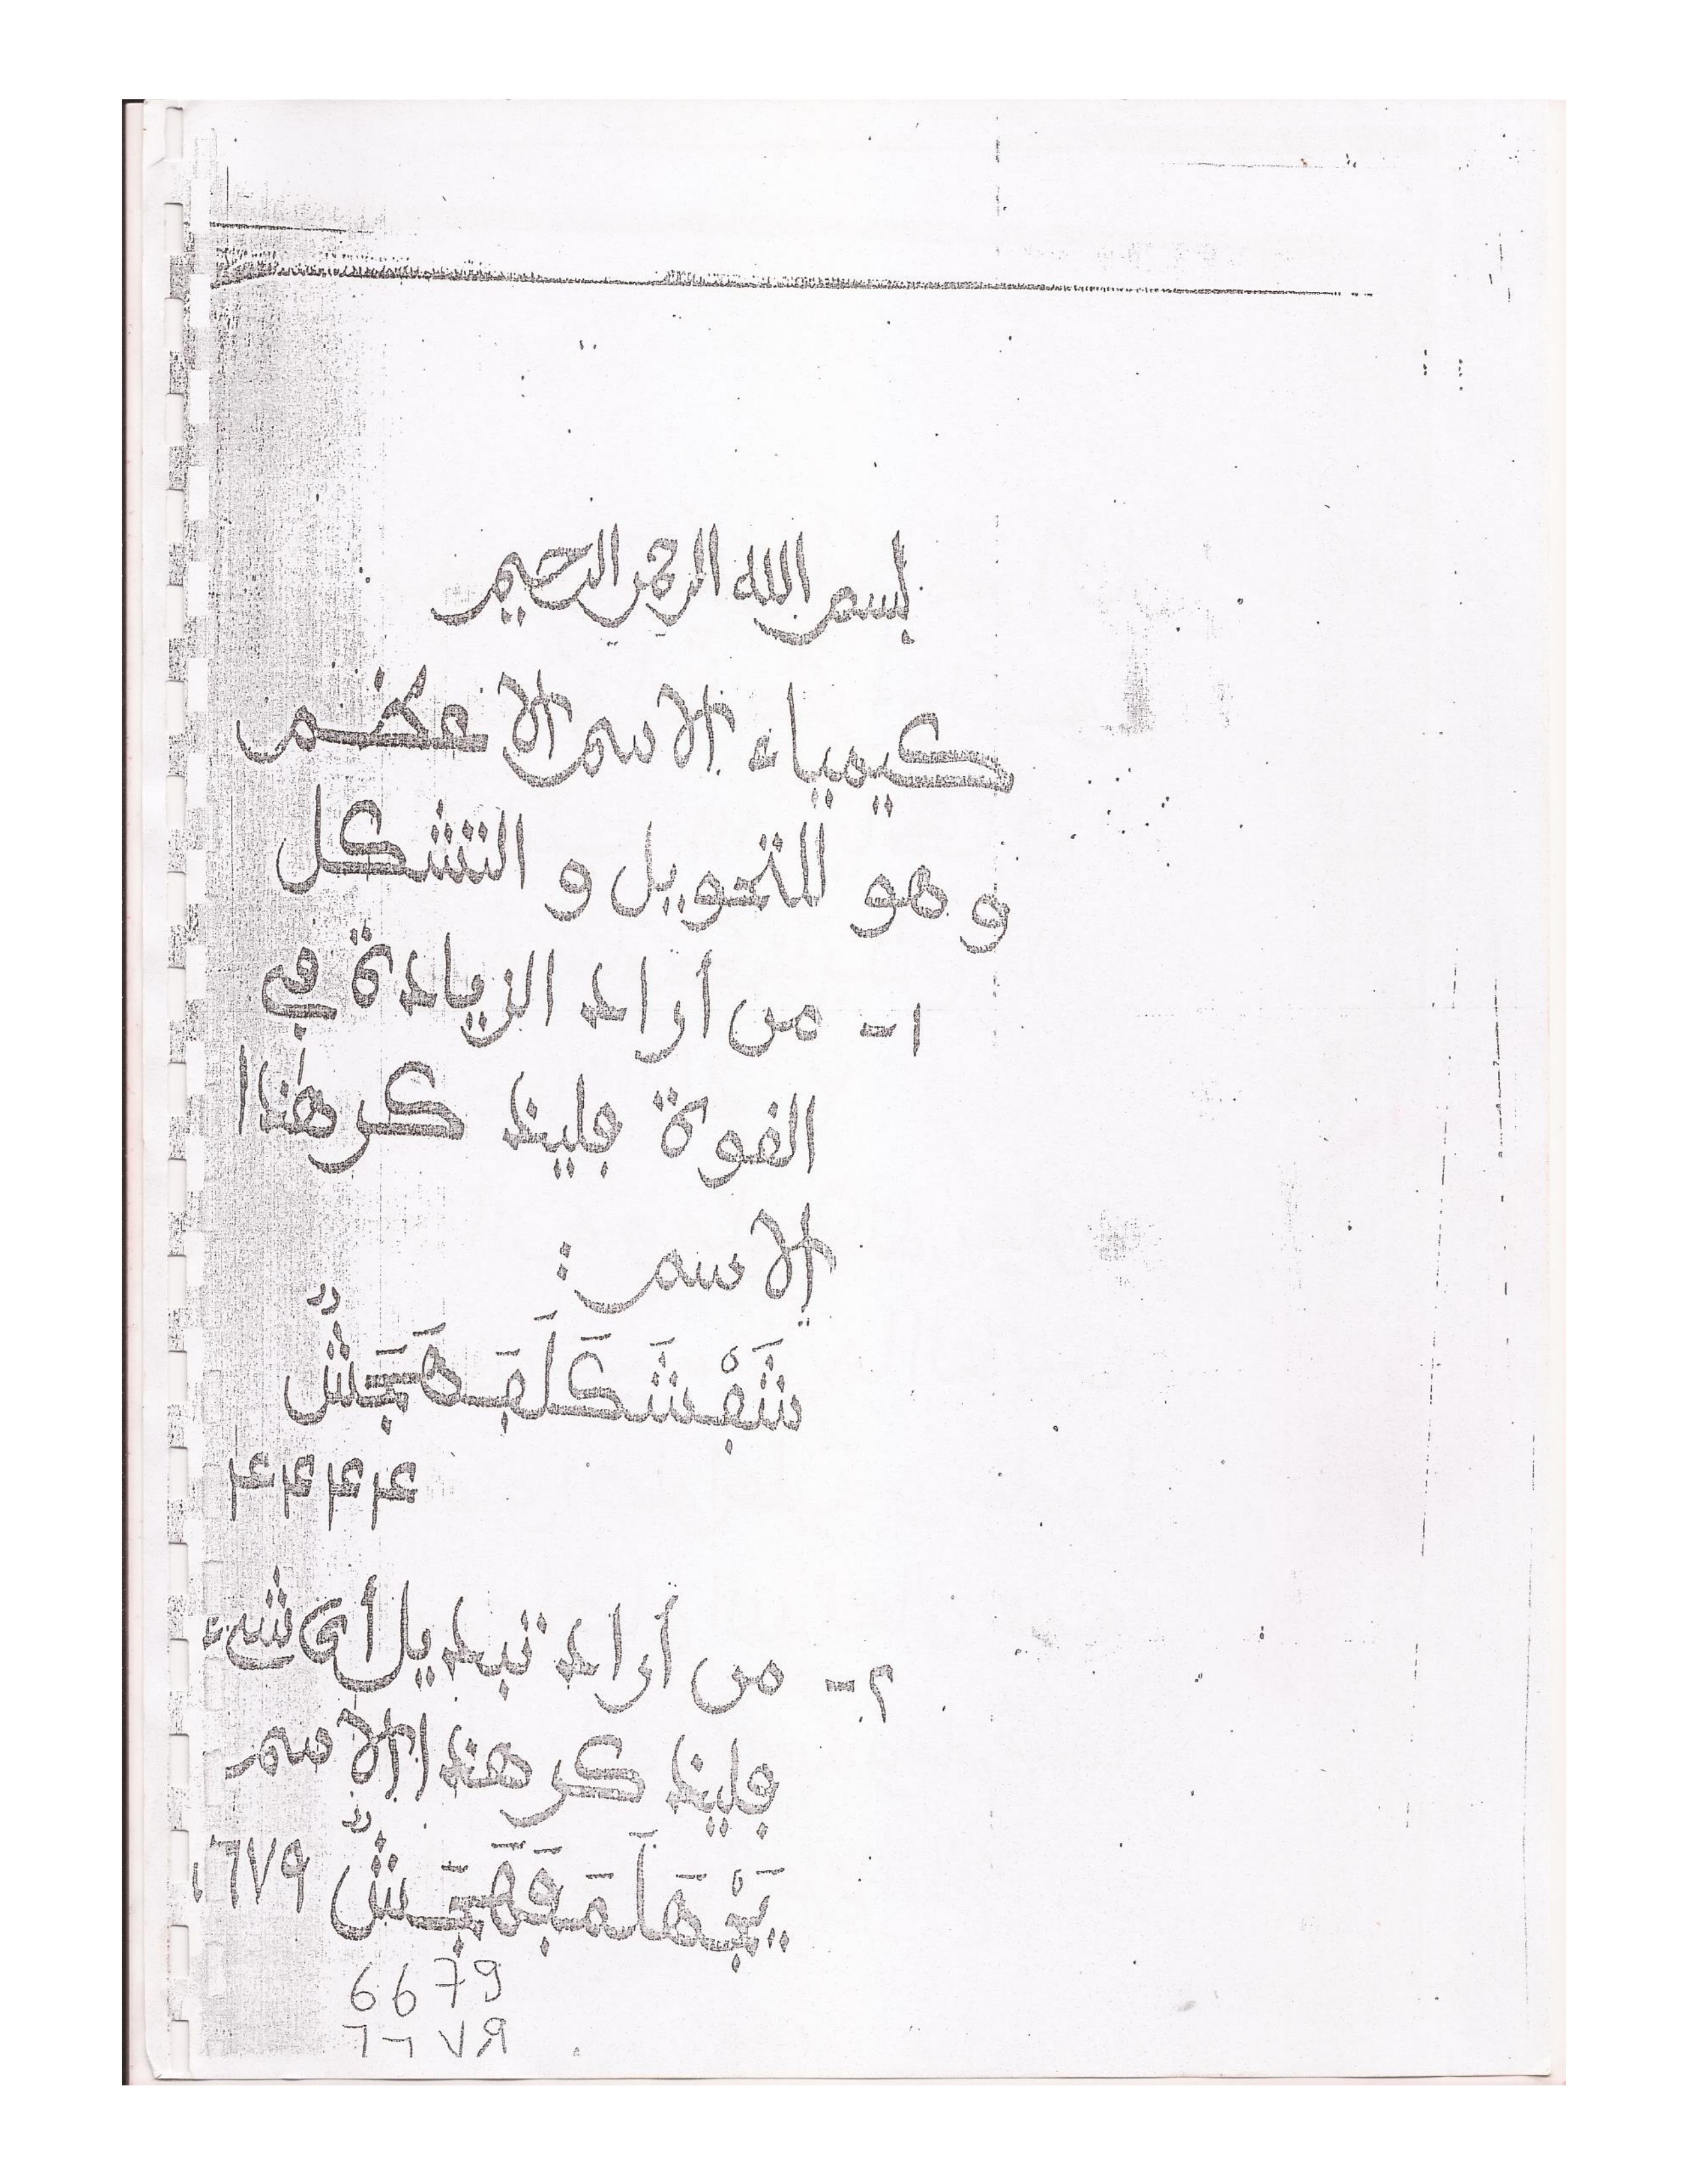 بسم الله الرحمن الرحيم
كيمياء الاسم الاعظم
وهو للتحويل و التشكل
١- من أراد الزيادة في
القوة فليذكر هذا
الاسم :
٤٤٤٤
٢- من أراد تبديل أي شيء
فليذكر هذا الاسم
6679
٦٦٧٩